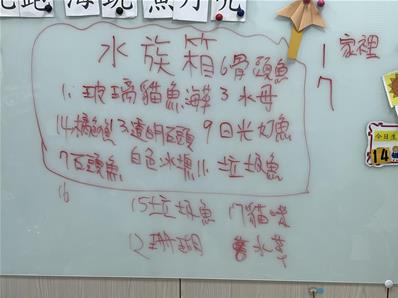 跑 海 魚
水族箱 6骨頭魚
1. 玻璃貓魚 海 3 水母
14橘色魚 3.透明石頭 9日光灯魚
7石頭魚 白色冰塊 11. 垃圾魚
16
15垃圾魚 17貓咪
12珊瑚 水草
1 家裡
7
今日
14